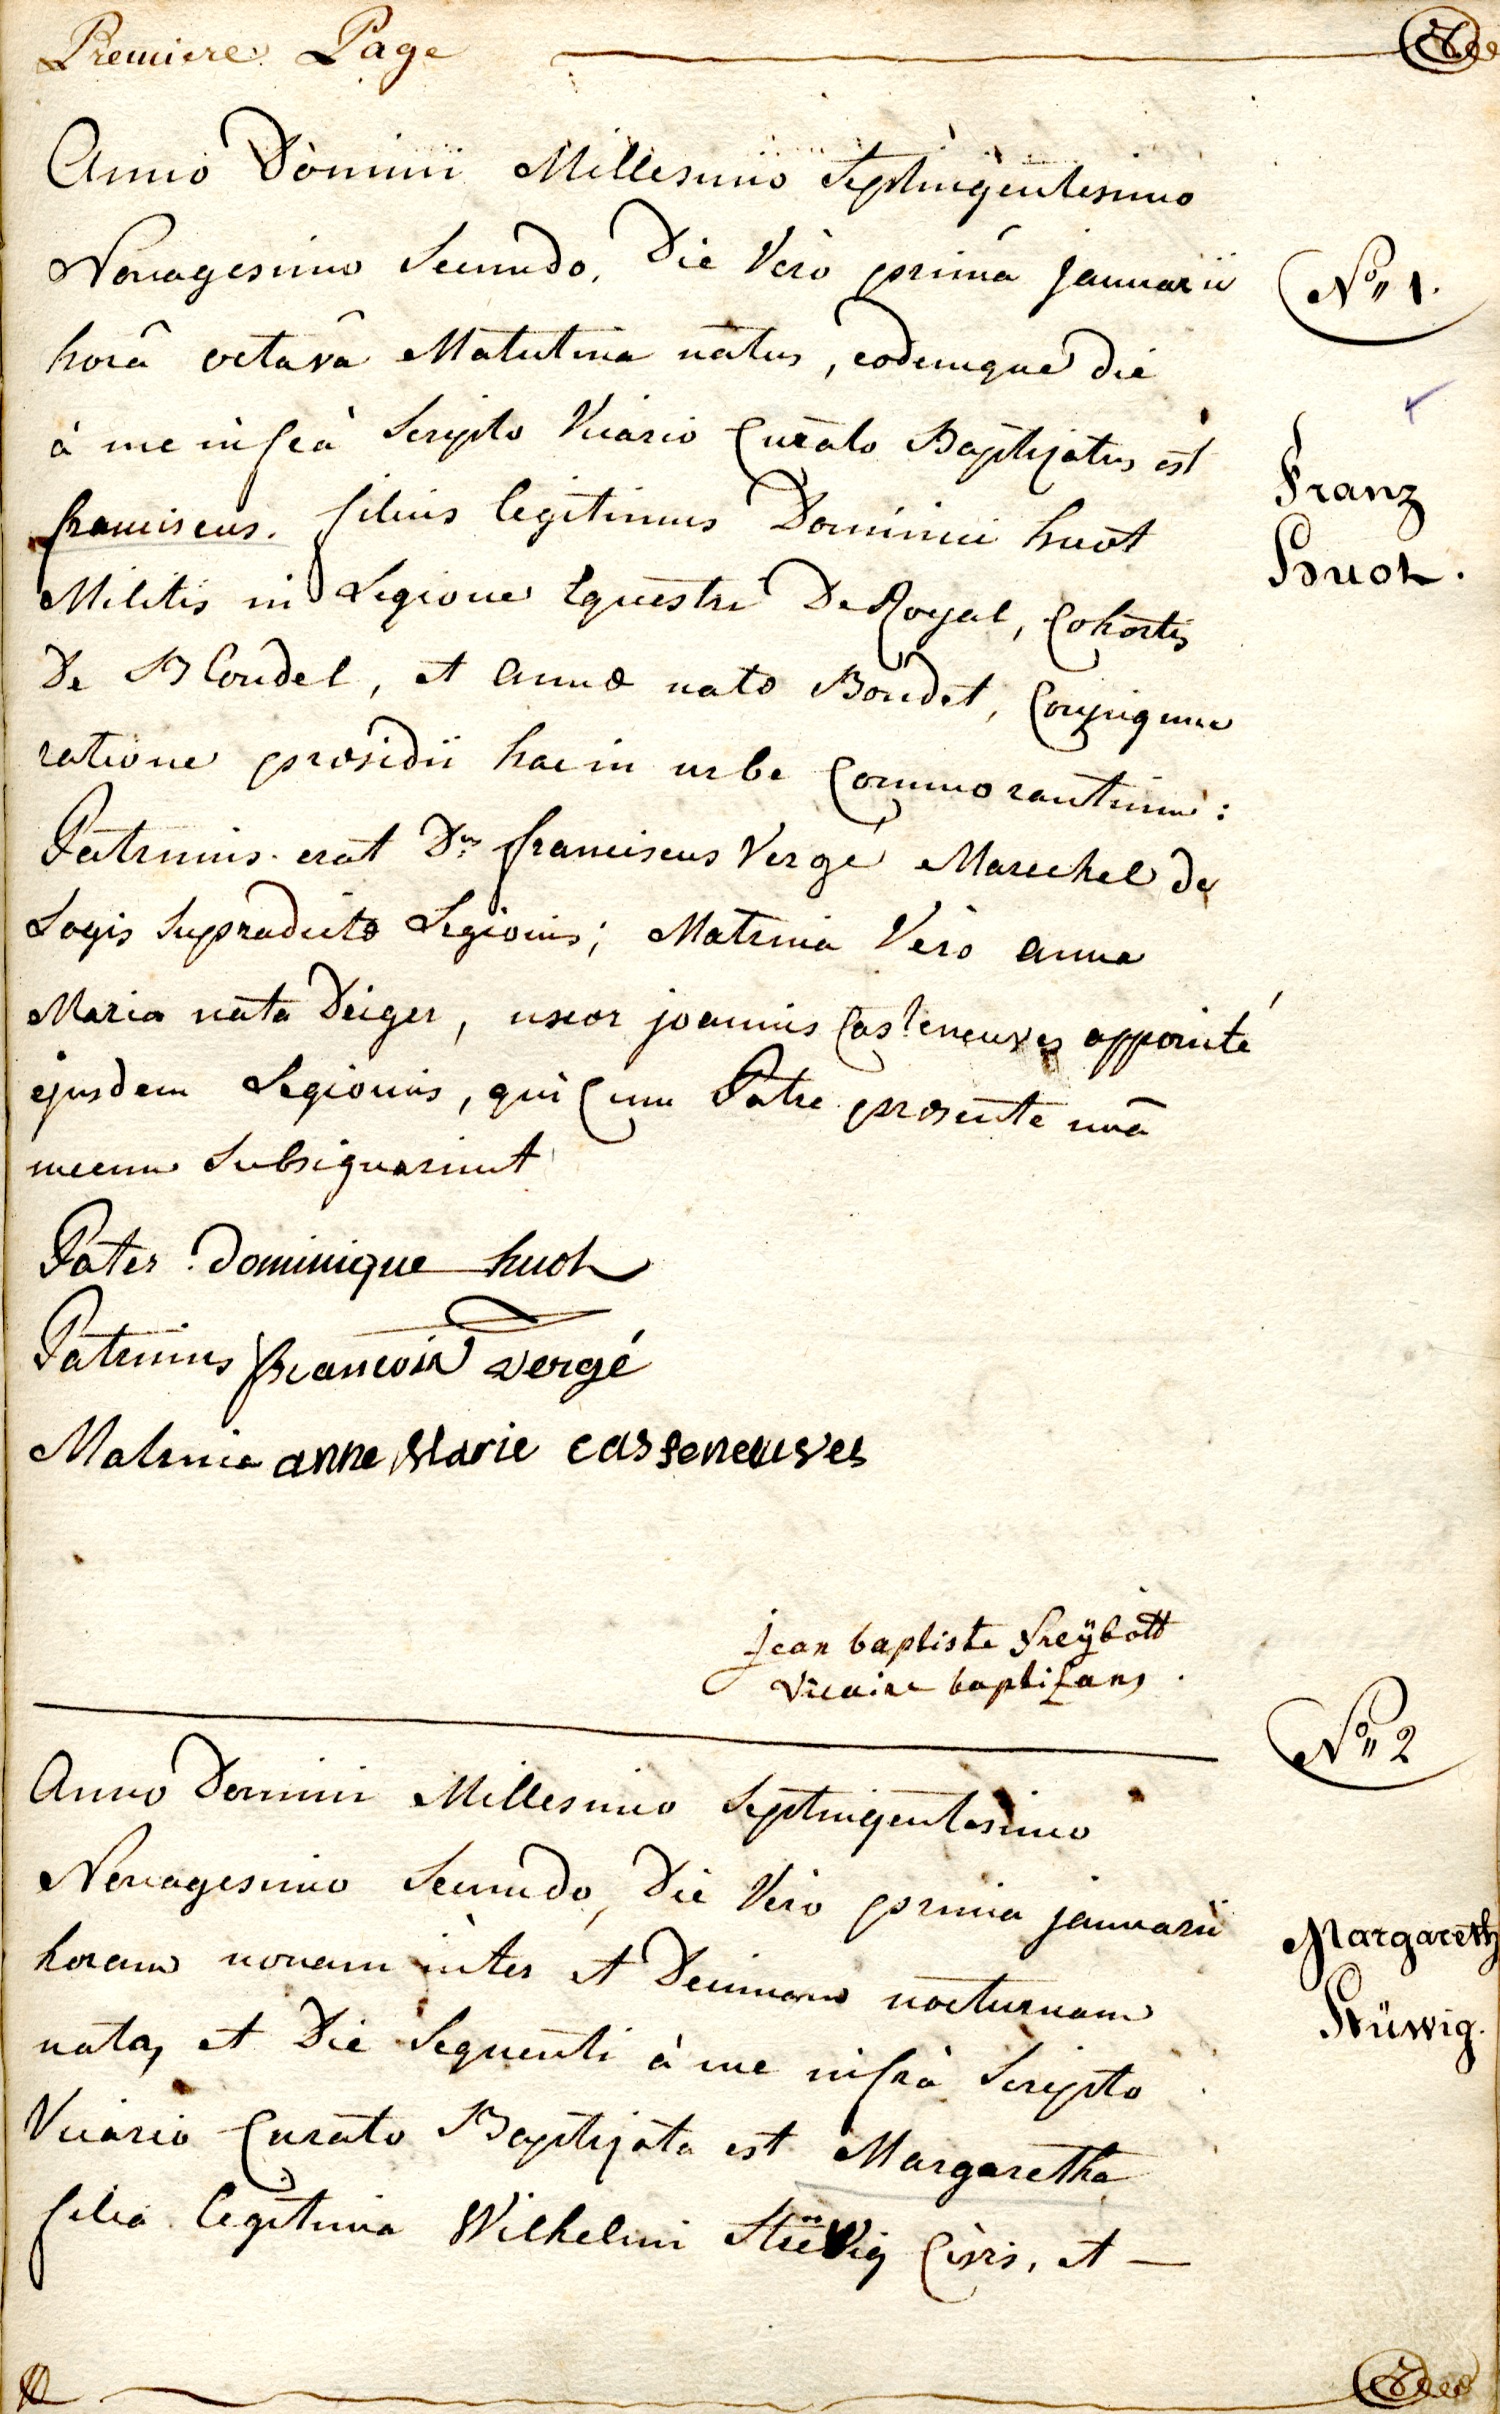 Premiere Page
Anno Domini Millesimo Septingentesimo
Nonagesimo Secundo, Die Verò primâ januarii
N° 1.
horâ octavâ Matutina natus, eodemque die
à me infrà Scripto Vicario Curato Baptizatus est
Franz
Huot.
franciscus. filius legitimus Dominici huot
Militis in Legione Equestri De Royal, Cohortis
De Blondel, et annæ natæ Boudet, Conjugum
ratione præsidii hac in urbe Commorantium:
Patrinus erat Dns franciscus Vergé Marechel de
Logis Supradictæ Legionis; Matrina Verò anna
Maria nata Deiger, uxor joannis Casteneuves appointé
ejusdem Legionis, qui Cum Patre præsente unâ
mecum Subsignarunt
Pater Dominique huot
Patrinus francois vergé
Matrina anne Marie casseneuves
jean baptiste Freÿbott
vicaire baptizans.
N° 2
Anno Domini Millesimo Septingentesimo
Nonagesimo Secundo, Die Vero prima januarii
Margareth
Stüwig.
horam nonam inter et Decimam nocturnam
nata, et Die Sequenti à me infrà Scripto
Vicario Curato Baptizata est Margaretha
filia legitima Wilhelmi Stüwig Civis, et —